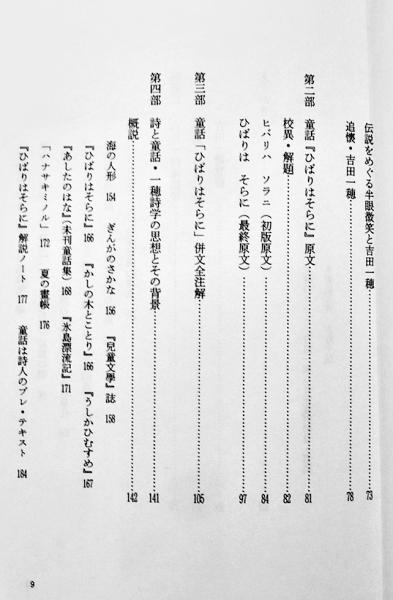 伝説をめぐる半眼微笑と吉田一穂……73
追懐・吉田一穂……78
第二部　童話『ひばりはそらに』原文……81
校異・解題……82
ヒバリハ　ソラニ（初版原文）……84
ひばりは　そらに（最終原文）……97
第三部　童話「ひばりはそらに」併文全注解……105
第四部　詩と童話・一穂詩学の思想とその背景……141
概説……142
海の人形　154　ぎんがのさかな　156　『兒童文學』誌　158
『ひばりはそらに』166　『かしの木とことり』166　『うしかひむすめ』167
『あしたのはな』（未刊童話集）168　『氷島漂流記』171
「ハナサキミノル」172　夏の畫帳　176
『ひばりはそらに』解説ノート　177　童話は詩人のプレ・テキスト　184
9